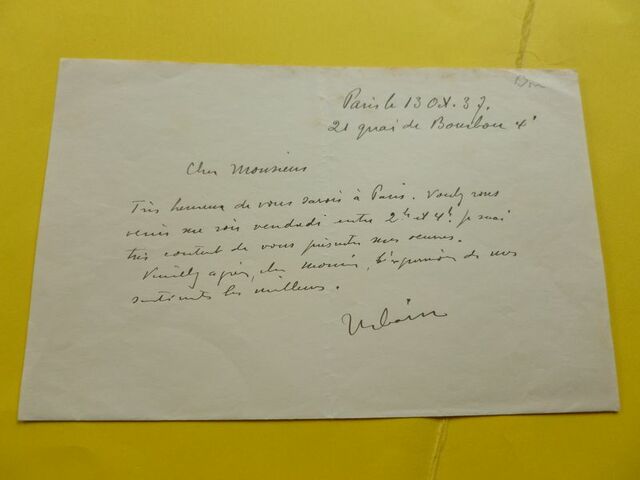 Paris le 13 Oct. 37.
21 quai de Bourbon 4e
Cher Monsieur
Très heureux de vous savoir à Paris. Voulez vous
venir me voir vendredi entre 2h et 4h. Je serai
très content de vous présenter mes oeuvres.
Veuillez agréer, cher Monsieur, l'expression de mes
sentiments les meilleurs.